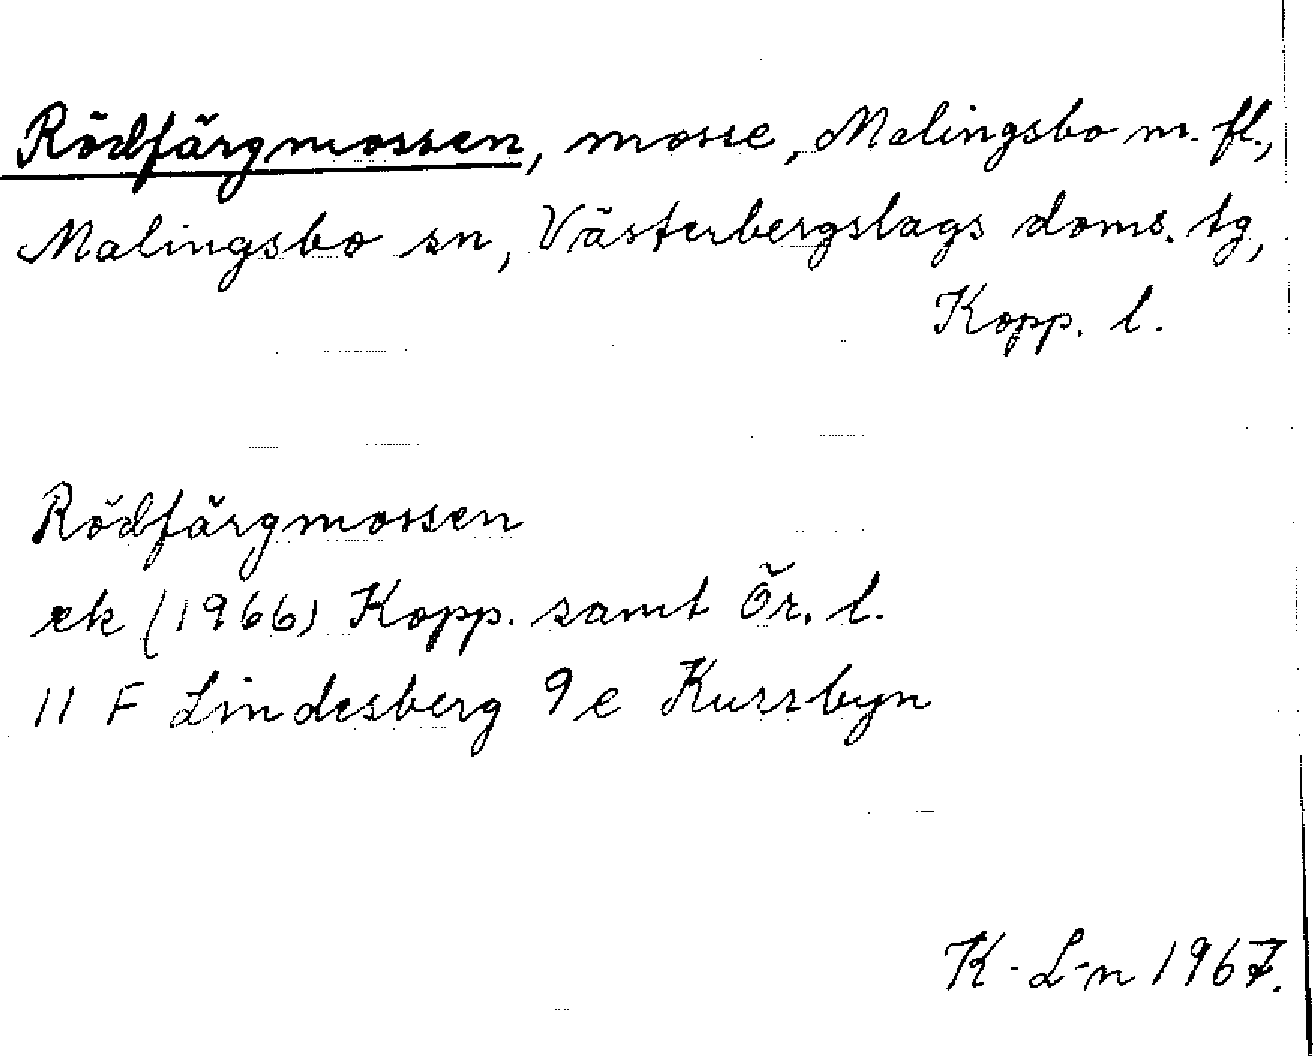 Rödfärgmossen, mosse, Malingsbo m. fl.,
Malingsbo sn, Västerbergslags doms. tg,
Kopp. l.
Rödfärgmossen
ek (1966) Kopp. samt Ör. l.
11 F Lindesberg 9e Kursbyn
K-L-n 1967.